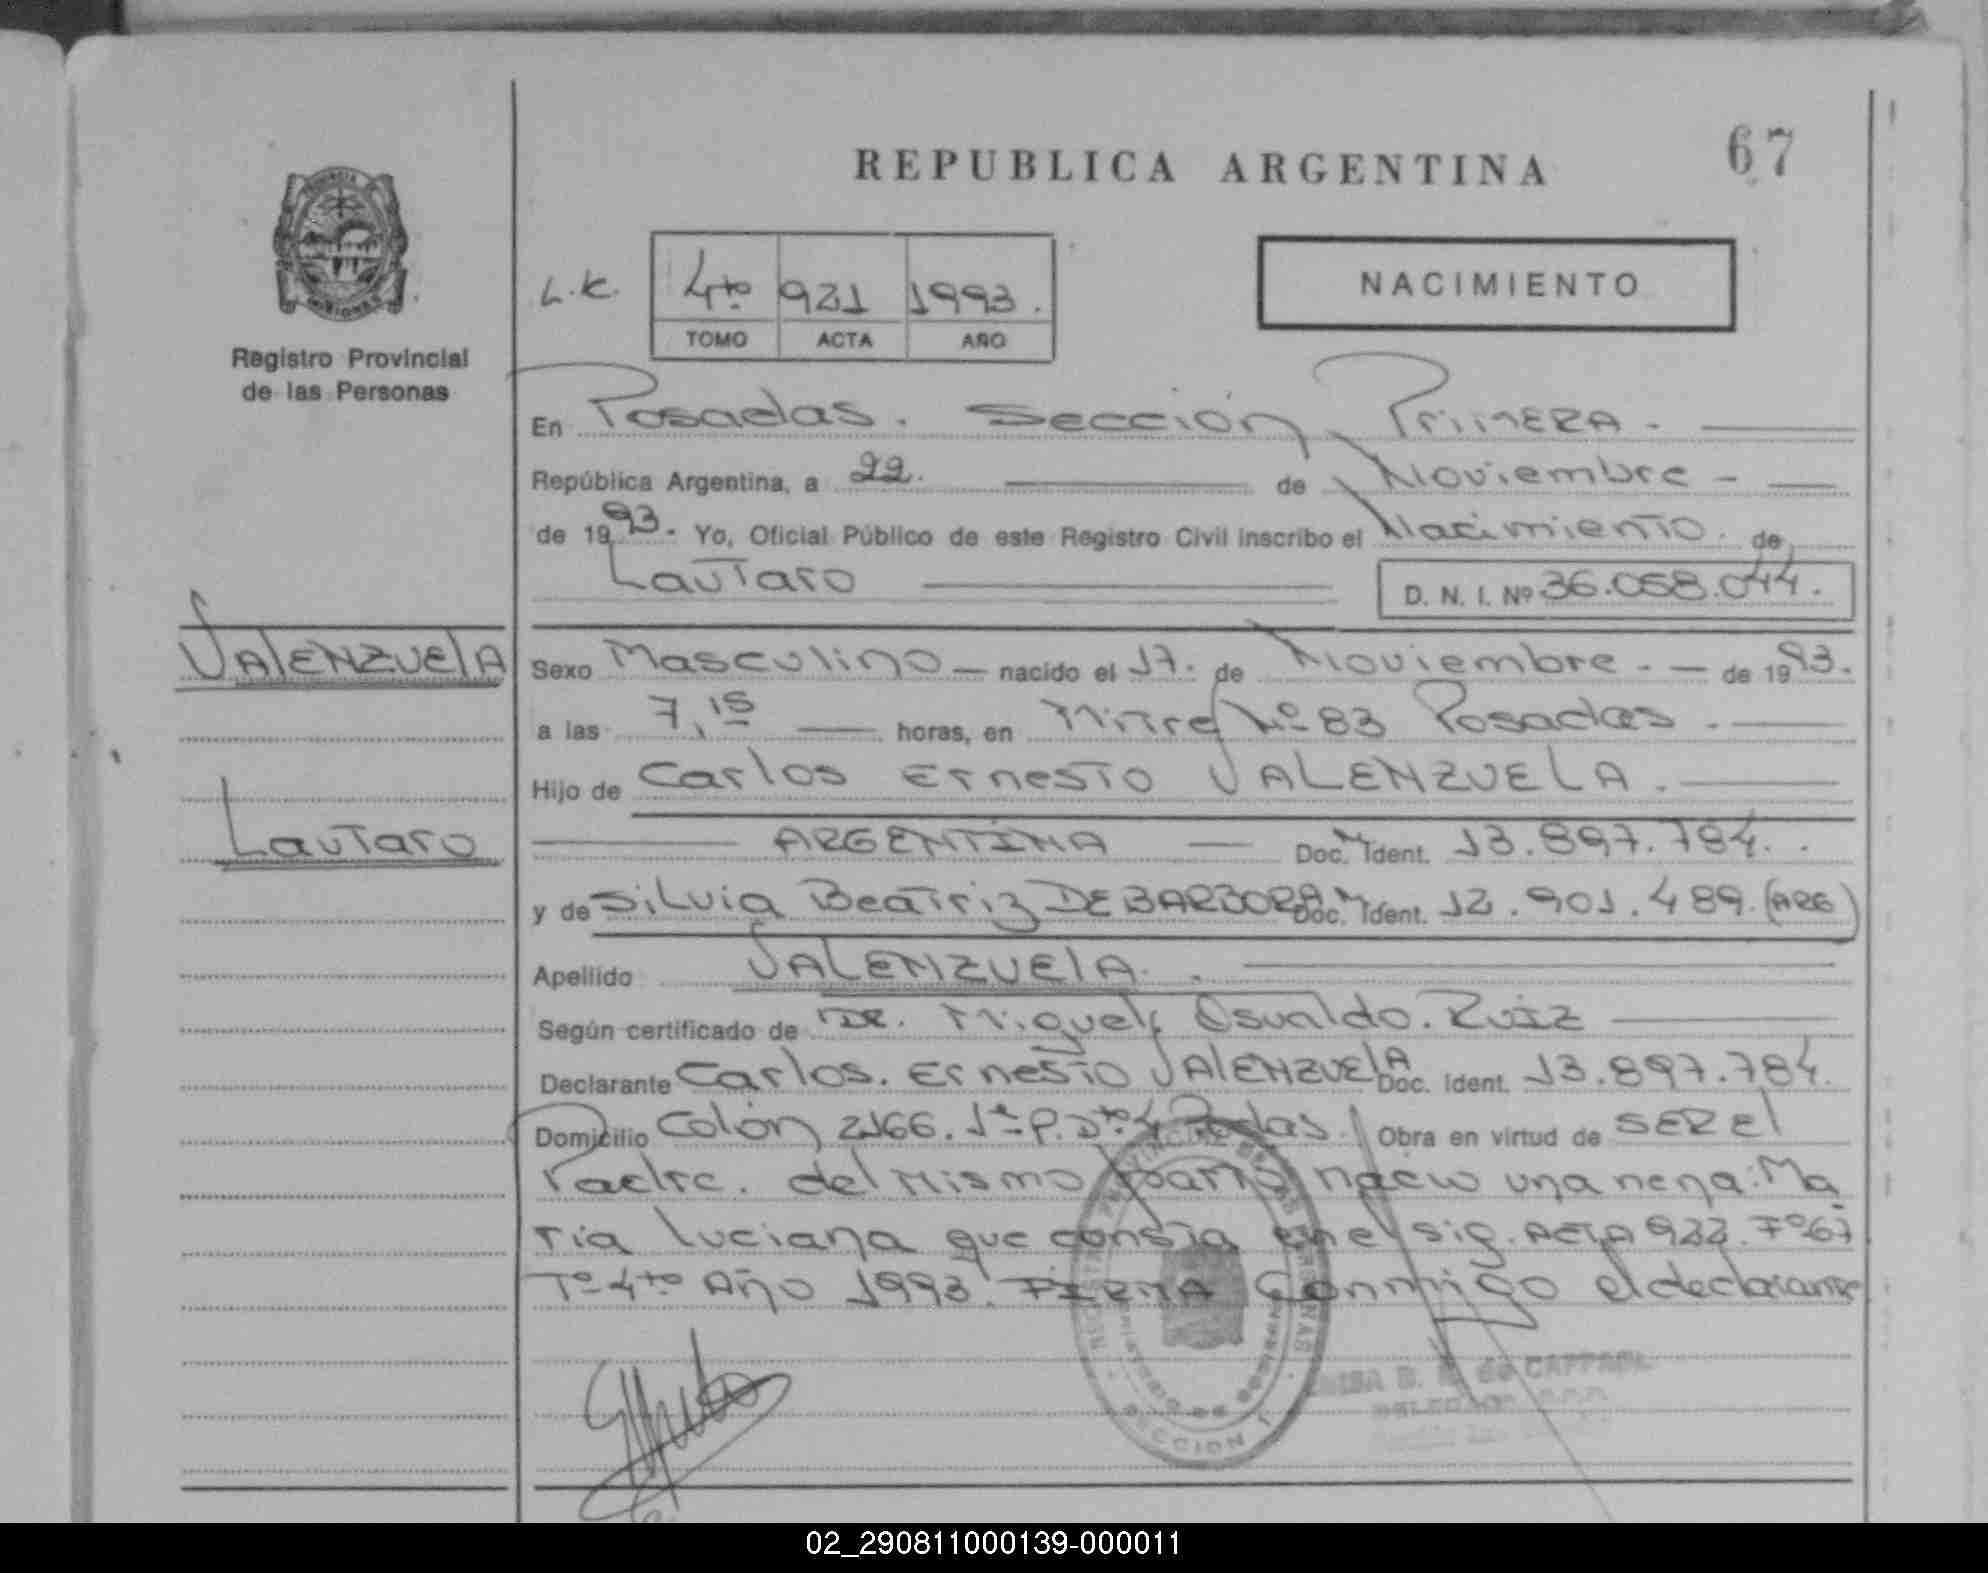 67
REPUBLICA ARGENTINA
PROVINCIA
MISIONES
Registro Provincial
de las Personas
L.K.
4to 921 1993.
TOMO ACTA AÑO
NACIMIENTO
En Posadas. Sección Primera.
República Argentina, a 22. de Noviembre
de 1993. Yo, Oficial Público de este Registro Civil inscribo el Nacimiento. de
Lautaro D. N. I. Nº 36.058.044.
VALENZUELA
Sexo Masculino nacido el 17. de Noviembre. de 1993.
a las 7,15 horas, en Mitre Nº 83 Posadas.
Hijo de Carlos Ernesto VALENZUELA.
Lautaro
ARGENTINA Doc. Ident. 13.897.784.
y de Silvia Beatriz DE BARBORA Doc. Ident. 12.901.489. (ARG)
Apellido VALENZUELA.
Según certificado de DR. Miguel Osvaldo. Ruiz
Declarante Carlos. Ernesto VALENZUELA Doc. Ident. 13.897.784.
Domicilio Colón 2166. 1º P. Dto 4 Posdas. Obra en virtud de SER el
Padre. del mismo parto nacio una nena: Ma
ria Luciana que consta en el sig. ACTA 922. Fº 67
Tº 4to Año 1993. FIRMA Conmigo el declarante
SECCION 1
de CAPPAEL
02_290811000139-000011